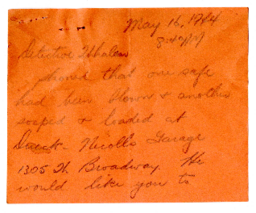 May 16, 1924
Detective Whalen
learned that one safe
had been blown & another
souped & loaded at
Nicolls Garage
1305 W. Broadway. He
would like you to